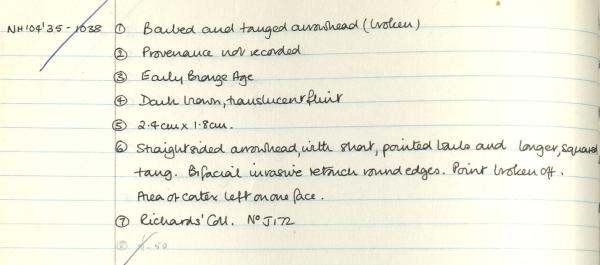 NH'04'35-1038 ① Barbed and tanged arrowhead (broken)
② Provenance not recorded
③ Early Bronze Age
④ Dark brown, translucent flint
⑤ 2.4cm x 1.8cm.
⑥ Straight sided arrowhead, with short, pointed barbs and longer, squared
tang. Bifacial invasive retouch round edges. Point broken off.
Area of cortex left on one face.
⑦ Richards' Coll. No J172
⑧ -50